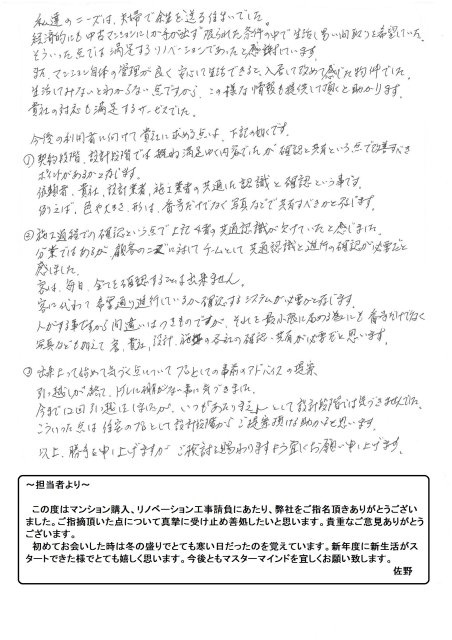 私達のニーズは、夫婦で余生を送る住まいでした。
経済的にも中古マンションにしか手が出ず限られた条件の中で生活し易い間取りを希望していた。
そういった点では満足するリノベーションであったと感謝しています
又、マンション自体の管理が良く安心して生活できると、入居して改めて感じた物件でした。
生活してみないとわからない点ですから、この様な情報も提供して頂くと助かります。
貴社の対応も満足するサービスでした。
今後の利用者に向けて貴社に求める点は、下記の如くです。
①契約段階、設計段階では概ね満足ゆく内容でしたが確認と共有という点で改善すべき
ポイントがあるかと存じます。
依頼者、貴社、設計業者、施工業者の共通した認識と確認という事です。
例えば、色や大きさ、形は、番号だけでなく写真などで共有すべきかと存じます。
②施工過程での確認という点で上記4者の共通認識が欠けていたと感じました。
分業ではあるが、顧客のニーズに対してチームとして共通認識と進行の確認が必要だと
感じました。
客は、毎日、全てを確認することは出来ません。
客に代わって希望通り進行しているか確認するシステムが必要かと存じます。
人がする事ですから間違いはつきものですが、それを最小限に留める為にも番号だけでなく
写真なども添えて客、貴社、設計、施工の各社の確認・共有が必要だと思います。
③出来上って始めて気づく点についてプロとしての事前のアドバイスの提案
引っ越しが終て、トイレに棚がない事に気づきました。
今まで12回引っ越しはしましたが、いつもあたりまえとして設計段階では気づきませんでした。
こういった点は住宅のプロとして設計段階からご提案頂けると助かると思います。
以上、勝手を申し上げますがご検討を賜わりますよう宜しくお願い申し上げます。
～担当者より～
この度はマンション購入、リノベーション工事請負にあたり、弊社をご指名頂きありがとうござい
ました。ご指摘頂いた点について真摯に受け止め善処したいと思います。貴重なご意見ありがとう
ございます。
初めてお会いした時は冬の盛りでとても寒い日だったのを覚えています。新年度に新生活がス
タートできた様でとても嬉しく思います。今後ともマスターマインドを宜しくお願い致します。
佐野